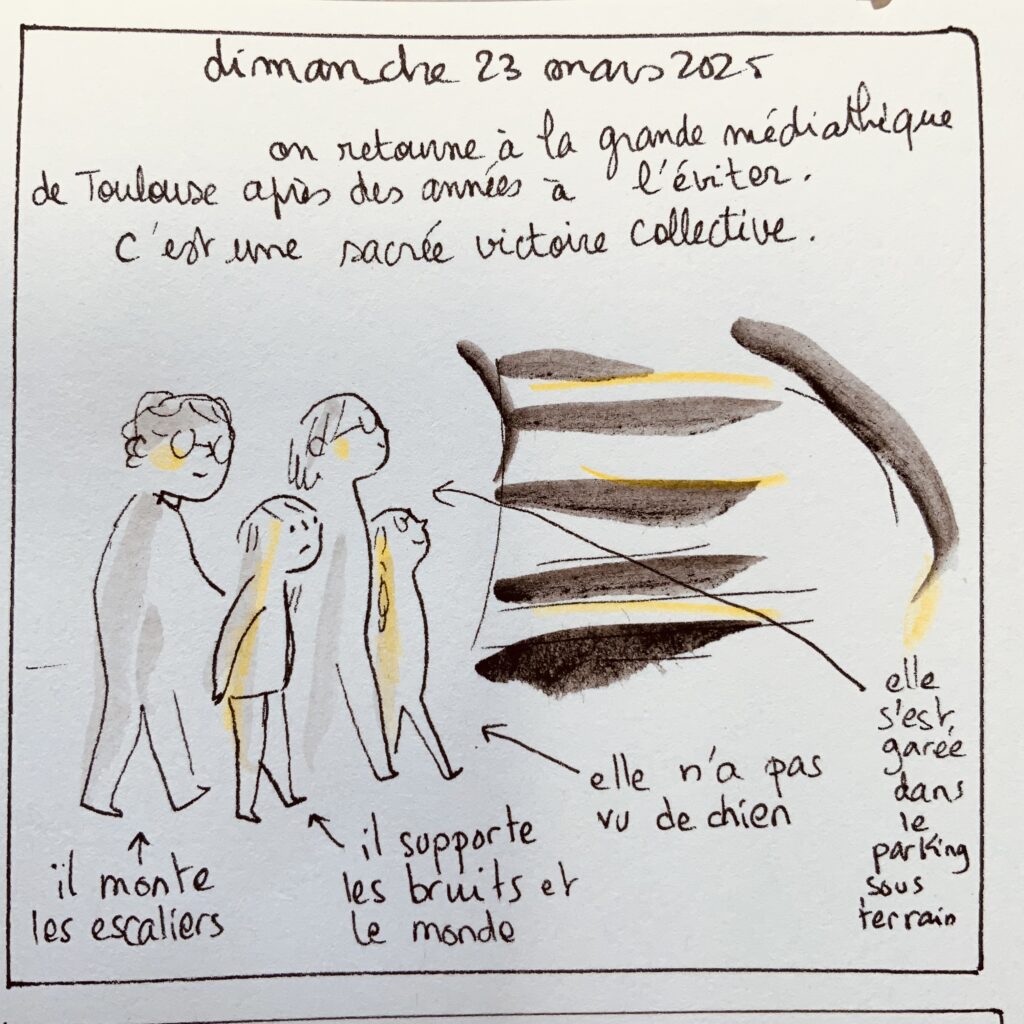 dimanche 23 mars 2025
on retourne à la grande médiathèque
de Toulouse après des années à l'éviter.
c'est une sacrée victoire collective.
elle
s'est
garée
dans
le
parking
sous
terrain
elle n'a pas
vu de chien
il supporte
les bruits et
le monde
il monte
les escaliers